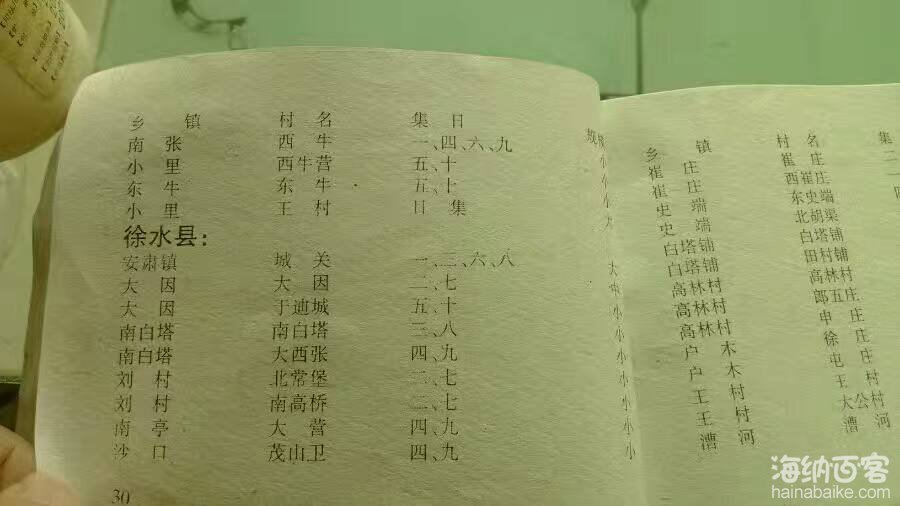 乡 镇 村 名 集 日
南 张 西 牛 一、四、六、九
小 里 西牛营 五、十
东 牛 东 牛 五、十
小 里 王 村 日 集
徐水县：
安肃镇 城 关 一、三、六、八
大 因 大 因 二、七
大 因 于迪城 五、十
南白塔 南白塔 三、八
南白塔 大西张 四、九
刘 村 北常堡 二、七
刘 村 南高桥 二、七
南 亭 大 营 四、九
沙 口 茂山卫 四、九
30
规模
小
小
小
大
大
中
小
小
小
小
小
小
小
乡 镇 村 名 集
崔 庄 崔 庄 二
崔 庄 西崔庄 二
史 端 东史端
史 端 北胡渠
白塔铺 白塔铺
白塔铺 田村铺
高林村 高林村
高林村 郎五庄
高林村 申
户 木 徐 庄
户 木 屯 庄
王 村 王 村
王 村 大公村
漕 河 漕 河
海纳百客
hainabaike.com